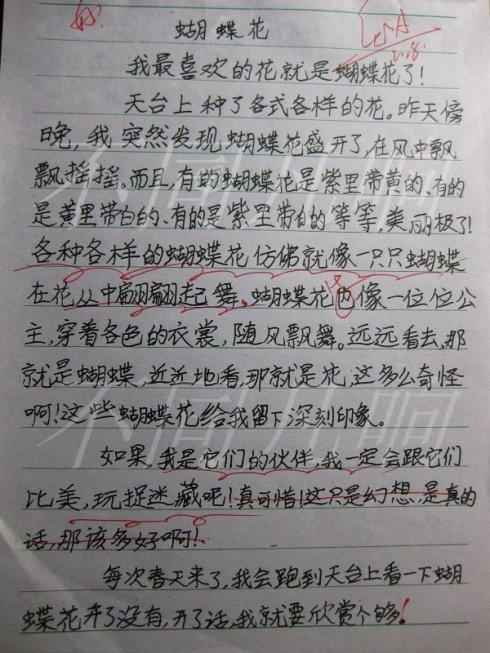 好
蝴蝶花
我最喜欢的花就是蝴蝶花了!
天台上种了各式各样的花。昨天傍
晚,我突然发现蝴蝶花盛开了,在风中飘
飘摇摇。而且,有的蝴蝶花是紫里带黄的、有的
是黄里带白的、有的是紫里带白的等等,美丽极了!
各种各样的蝴蝶花仿佛就像一只只蝴蝶
在花丛中翩翩起舞。蝴蝶花也像一位位公
主,穿着各色的衣裳,随风飘舞。远远看去,那
就是蝴蝶,近近地看,那就是花,这多么奇怪
啊!这些蝴蝶花给我留下深刻印象。
如果,我是它们的伙伴,我一定会跟它们
比美,玩捉迷藏呢!真可惜!这只是幻想,是真的
话,那该多好啊!
每次春天来了,我会跑到天台上看一下蝴
蝶花开了没有,开了话,我就要欣赏个够!